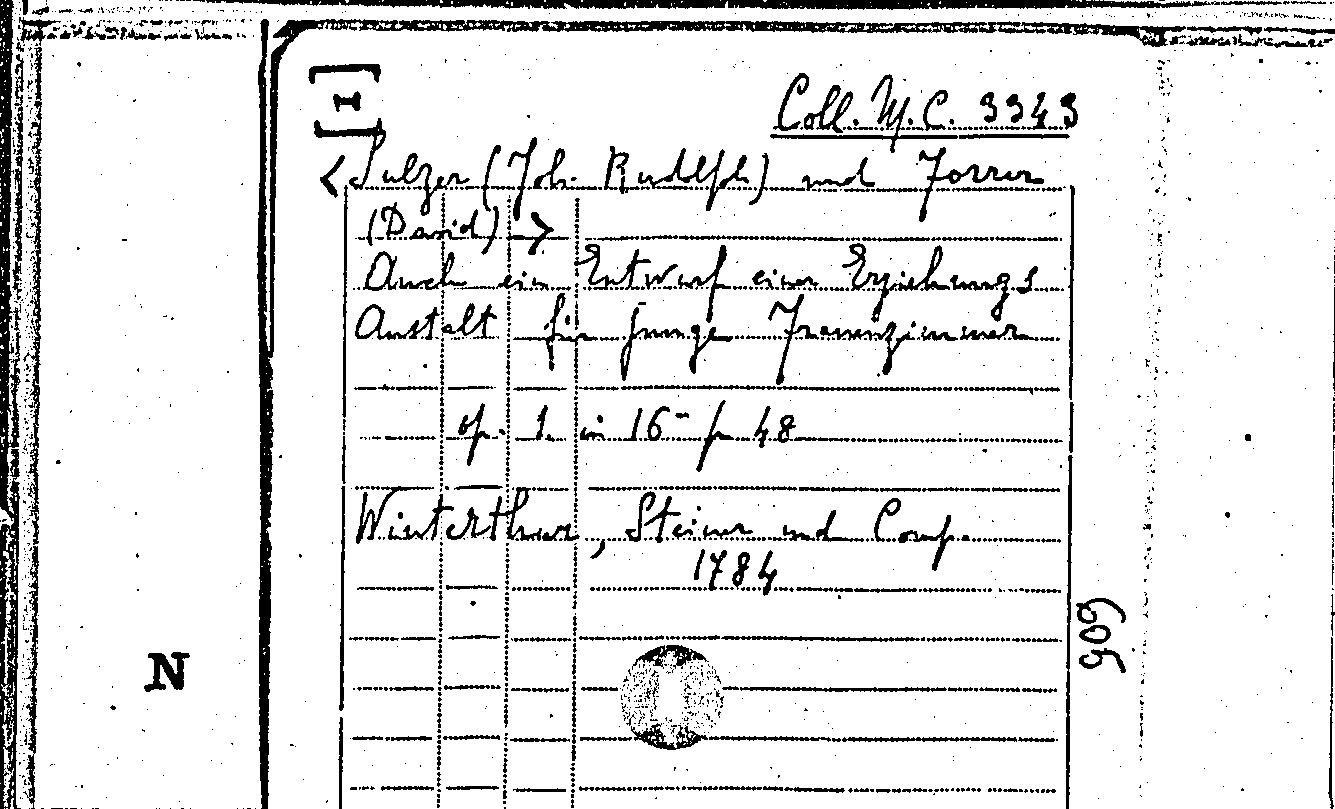 [I]
Coll. M. C. 3343
<Sulzer (Joh. Rudolph) und Forrer
(David)>
Auch ein Entwurf einer Erziehungs
Anstalt für junge Frauenzimmer
op. 1. in 16- p 48
Winterthur, Steiner und Comp.
1784
N
909